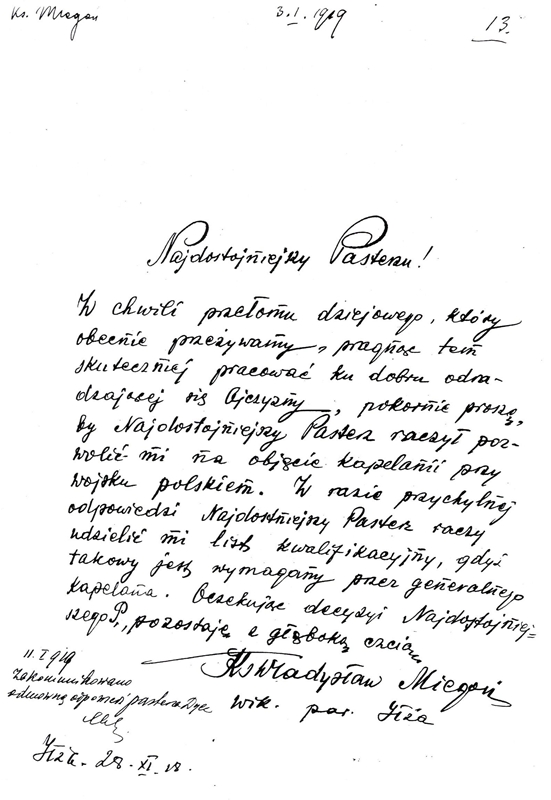 Ks. Miegoń
3.I.1919
13.
Najdostojniejszy Pasterzu!
W chwili przełomu dziejowego, który
obecnie przeżywamy, pragnąc tem
skuteczniej pracować ku dobru odra-
dzającej się Ojczyzny, pokornie proszę,
by Najdostojniejszy Pasterz raczył poz-
wolić mi na objęcie kapelanii przy
wojsku polskiem. W razie przychylnej
odpowiedzi Najdostojniejszy Pasterz raczy
udzielić mi listę kwalifikacyjny, gdyż
takowy jest wymagany przez generalnego
kapelana. Oczekując decyzyi Najdostojniej-
szego P., pozostaję z głęboką czcią
Ks Władysław Miegoń
wik. par. Iłża
11.I 1919
Zakomunikowano
odmowną odpowiedź pasterza Dyec
Iłża. 28.XI.18.